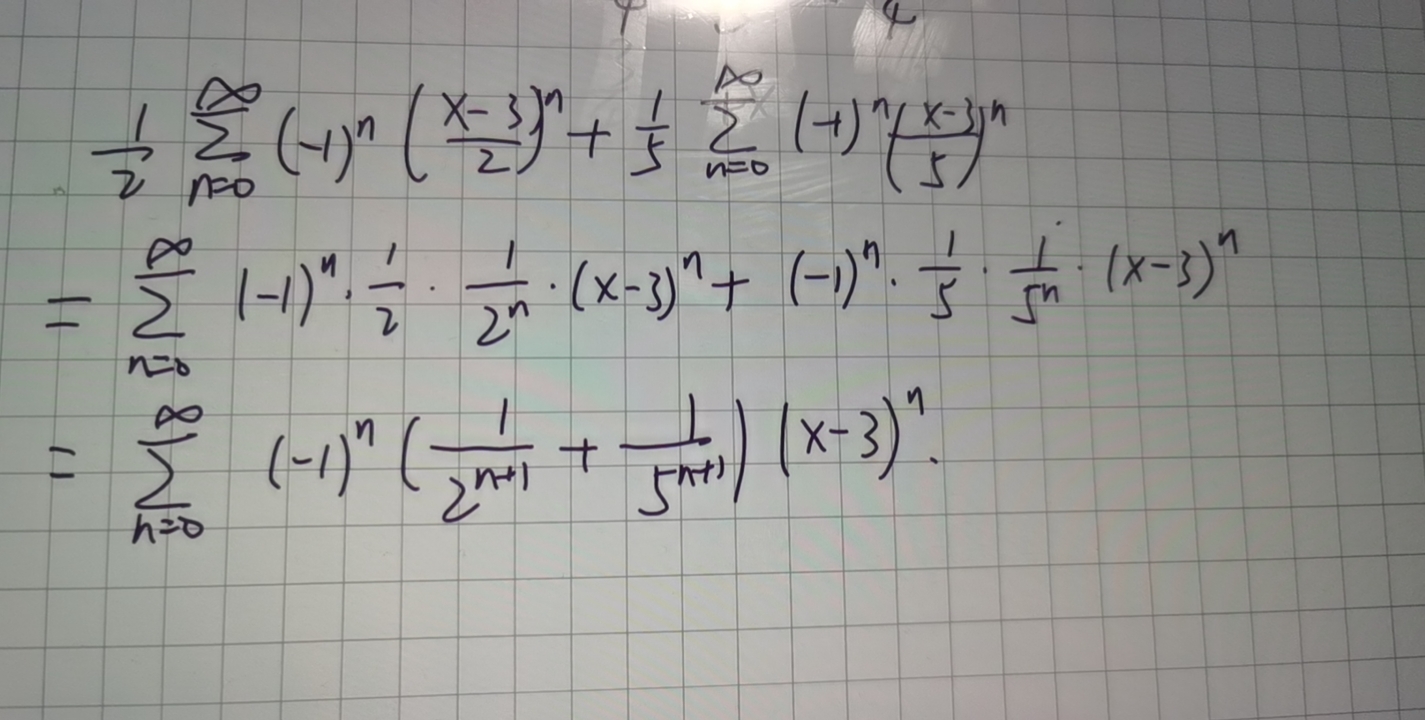 \frac{1}{2} \sum_{n=0}^{\infty} (-1)^n \left(\frac{x-3}{2}\right)^n + \frac{1}{5} \sum_{n=0}^{\infty} (-1)^n \left(\frac{x-3}{5}\right)^n
= \sum_{n=0}^{\infty} (-1)^n \cdot \frac{1}{2} \cdot \frac{1}{2^n} \cdot (x-3)^n + (-1)^n \cdot \frac{1}{5} \cdot \frac{1}{5^n} \cdot (x-3)^n
= \sum_{n=0}^{\infty} (-1)^n \left(\frac{1}{2^{n+1}} + \frac{1}{5^{n+1}}\right) (x-3)^n.